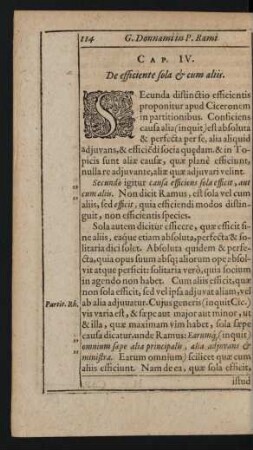 114 G. Dounami in P. Rami
CAP. IV.
De efficiente sola & cum aliis.
SEcunda distinctio efficientis
proponitur apud Ciceronem
in partitionibus. Conficiens
causa alia (inquit) est absoluta
& perfecta per se, alia aliquid
adjuvans, & efficiẽdi socia quędam. & in To-
picis sunt aliæ causæ, quæ planè efficiunt,
nulla re adjuvante, aliæ quæ adjuvari velint.
„ Secundò igitur causa efficiens sola efficit, aut
„ cum aliis. Non dicit Ramus, est sola vel cum
aliis, sed efficit, quia efficiendi modos distin-
guit, non efficientis species.
Sola autem dicitur efficere, quæ efficit si-
ne aliis, eaque etiam absoluta, perfecta & so-
litaria dici solet. Absoluta quidem & perfe-
cta, quia opus suum absq; aliorum ope absol-
vit atque perficit: solitaria verò, quia socium
in agendo non habet. Cum aliis efficit, quæ
non sola efficit, sed vel ipsa adjuvat aliam, vel
Partit. Rh. ab alia adjuvatur. Cujus generis (inquit Cic.)
vis varia est, & sæpe aut major aut minor, ut
& illa, quæ maximam vim habet, sola sæpe
„ causa dicatur. unde Ramus: Earumq́; (inquit)
„ omnium sæpe alia principalis, alia adjuvans &
„ ministra. Earum omnium) scilicet quæ cum
aliis efficiunt. Nam de ea, quæ sola efficit,
istud